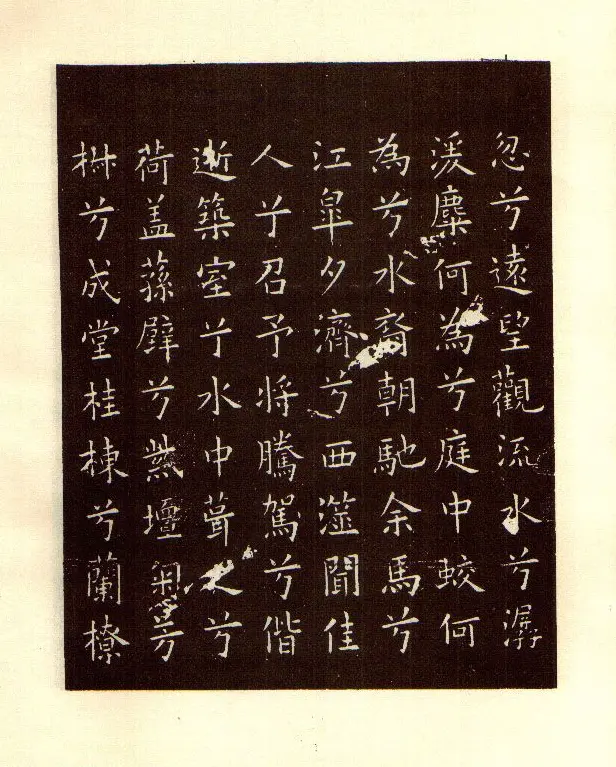 忽兮遠望觀流水兮潺
湲麋何為兮庭中蛟何
為兮水裔朝馳余馬兮
江皋夕濟兮西澨聞佳
人兮召予将騰駕兮偕
逝築室兮水中葺之兮
荷盖蓀壁兮紫壇匊芳
椒兮成堂桂棟兮蘭橑